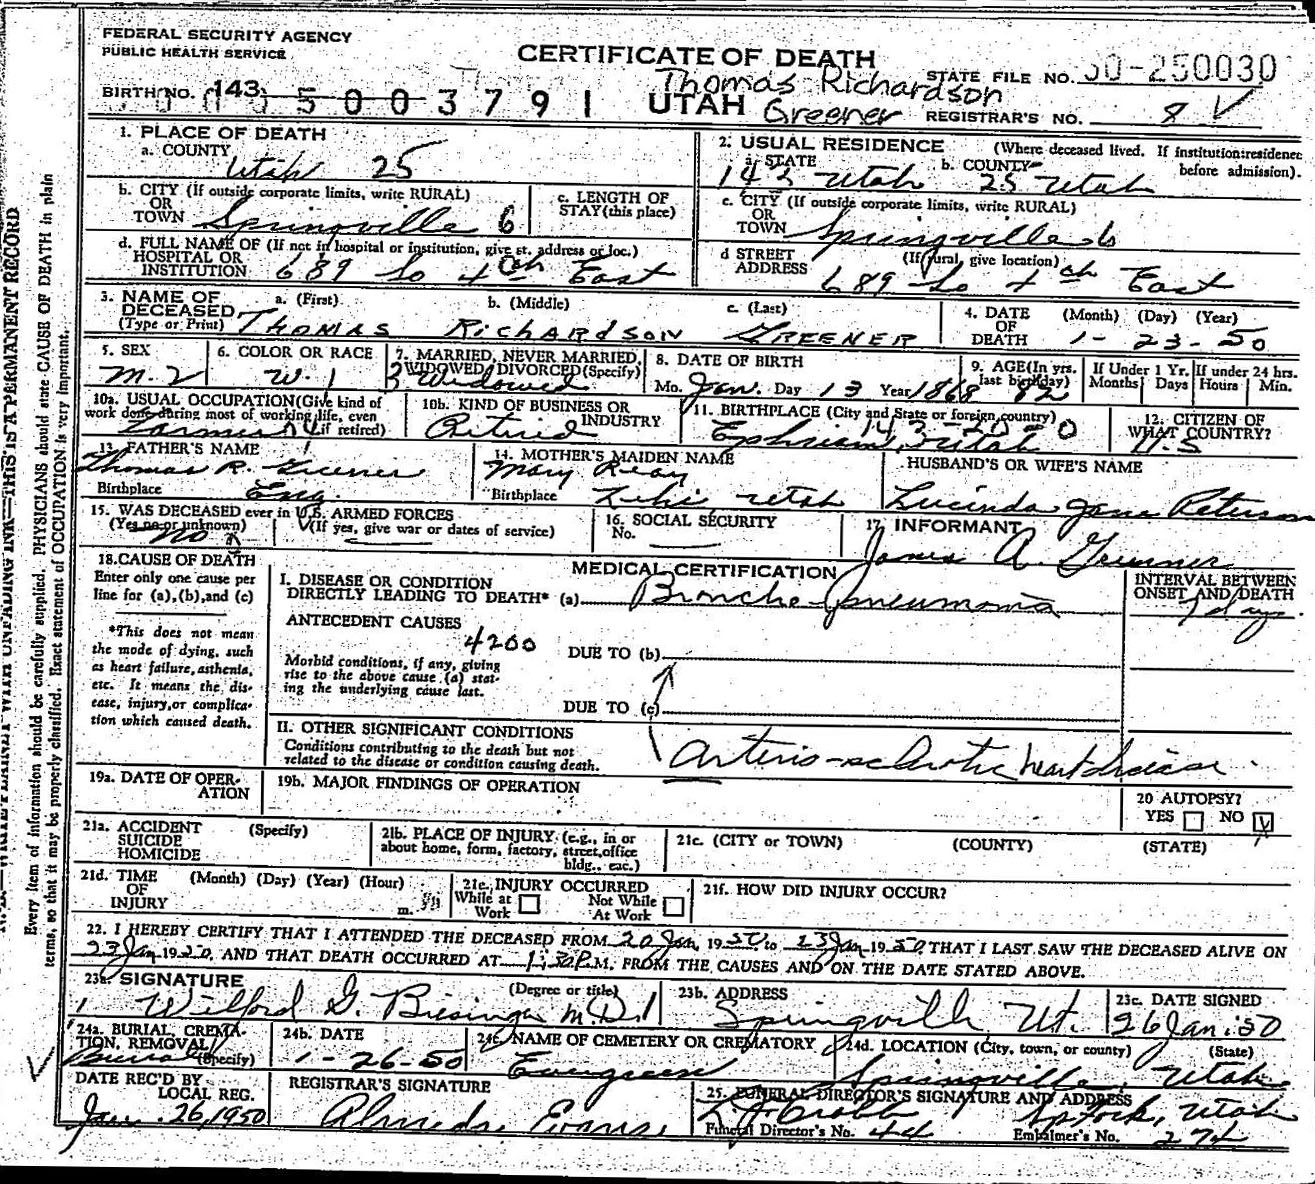 FEDERAL SECURITY AGENCY
PUBLIC HEALTH SERVICE
CERTIFICATE OF DEATH
STATE FILE NO. 50-250030
Thomas Richardson
Greener
BIRTH NO. 143
5003791
UTAH
REGISTRAR'S NO. 8
N. B.—WRITE PLAINLY WITH UNFADING INK—THIS IS A PERMANENT RECORD
Every item of information should be carefully supplied. PHYSICIANS should state CAUSE OF DEATH in plain
terms, so that it may be properly classified. Exact statement of OCCUPATION is very important.
1. PLACE OF DEATH
a. COUNTY
Utah 25
2. USUAL RESIDENCE (Where deceased lived. If institution:residence before admission).
a. STATE b. COUNTY
143 Utah 25 Utah
b. CITY (If outside corporate limits, write RURAL)
OR
TOWN Springville 6
c. LENGTH OF
STAY(this place)
c. CITY (If outside corporate limits, write RURAL)
OR
TOWN Springville 6
d. FULL NAME OF (If not in hospital or institution, give st. address or loc.)
HOSPITAL OR
INSTITUTION 689 So 4th East
d STREET (If rural, give location)
ADDRESS 689 So 4th East
3. NAME OF a. (First) b. (Middle) c. (Last)
DECEASED
(Type or Print) THOMAS RICHARDSON GREENER
4. DATE (Month) (Day) (Year)
OF
DEATH 1-23-50
5. SEX
M. 2
6. COLOR OR RACE
W. 1
7. MARRIED, NEVER MARRIED,
WIDOWED, DIVORCED(Specify)
3 Widowed
8. DATE OF BIRTH
Mo. Jan. Day 13 Year 1868
9. AGE(In yrs.
last birthday)
82
If Under 1 Yr.
Months Days
If under 24 hrs.
Hours Min.
10a. USUAL OCCUPATION(Give kind of
work done during most of working life, even
if retired)
Farmer
10b. KIND OF BUSINESS OR
INDUSTRY
Retired
11. BIRTHPLACE (City and State or foreign country)
Ephriam, Utah
12. CITIZEN OF
WHAT COUNTRY?
U.S
13. FATHER'S NAME
Thomas R. Greener
Birthplace Eng.
14. MOTHER'S MAIDEN NAME
Mary
Birthplace Lehi Utah
HUSBAND'S OR WIFE'S NAME
Lucinda Jane Peterson
15. WAS DECEASED ever in U.S. ARMED FORCES
(Yes no or unknown) (If yes, give war or dates of service)
no
16. SOCIAL SECURITY
No.
17. INFORMANT
James A. Greener
18.CAUSE OF DEATH
Enter only one cause per
line for (a),(b),and (c)
*This does not mean
the mode of dying, such
as heart failure,asthenia,
etc. It means the dis-
ease, injury,or complica-
tion which caused death.
MEDICAL CERTIFICATION
I. DISEASE OR CONDITION
DIRECTLY LEADING TO DEATH* (a) Broncho-pneumonia
INTERVAL BETWEEN
ONSET AND DEATH
7 days.
ANTECEDENT CAUSES
4200
Morbid conditions, if any, giving
rise to the above cause (a) stat-
ing the underlying cause last.
DUE TO (b)
DUE TO (c)
II. OTHER SIGNIFICANT CONDITIONS
Conditions contributing to the death but not
related to the disease or condition causing death.
Arterio-sclerotic heart disease.
19a. DATE OF OPER-
ATION
19b. MAJOR FINDINGS OF OPERATION
20 AUTOPSY?
YES NO
21a. ACCIDENT (Specify)
SUICIDE
HOMICIDE
21b. PLACE OF INJURY (e.g., in or
about home, form, factory, street,office
bldg., eac.)
21c. (CITY or TOWN) (COUNTY) (STATE)
21d. TIME (Month) (Day) (Year) (Hour)
OF
INJURY m.
21e. INJURY OCCURRED
While at Not While
Work At Work
21f. HOW DID INJURY OCCUR?
22. I HEREBY CERTIFY THAT I ATTENDED THE DECEASED FROM 20 Jan, 1950 to 23 Jan 1950, THAT I LAST SAW THE DECEASED ALIVE ON
23 Jan 1950, AND THAT DEATH OCCURRED AT 1:30 P.M. FROM THE CAUSES AND ON THE DATE STATED ABOVE.
23a. SIGNATURE (Degree or title)
Wilford G. Biesinger M.D. 1
23b. ADDRESS
Springville, Ut.
23c. DATE SIGNED
26 Jan: 50
24a. BURIAL, CREMA-
TION, REMOVAL
(Specify)
Burial
24b. DATE
1-26-50
24c. NAME OF CEMETERY OR CREMATORY
Evergreen
24d. LOCATION (City, town, or county) (State)
Springville, Utah
DATE REC'D BY
LOCAL REG.
Jan. 26, 1950
REGISTRAR'S SIGNATURE
Almeda Evans
25. FUNERAL DIRECTOR'S SIGNATURE AND ADDRESS
Sp Fork, Utah
Funeral Director's No. 44
Embalmer's No. 274